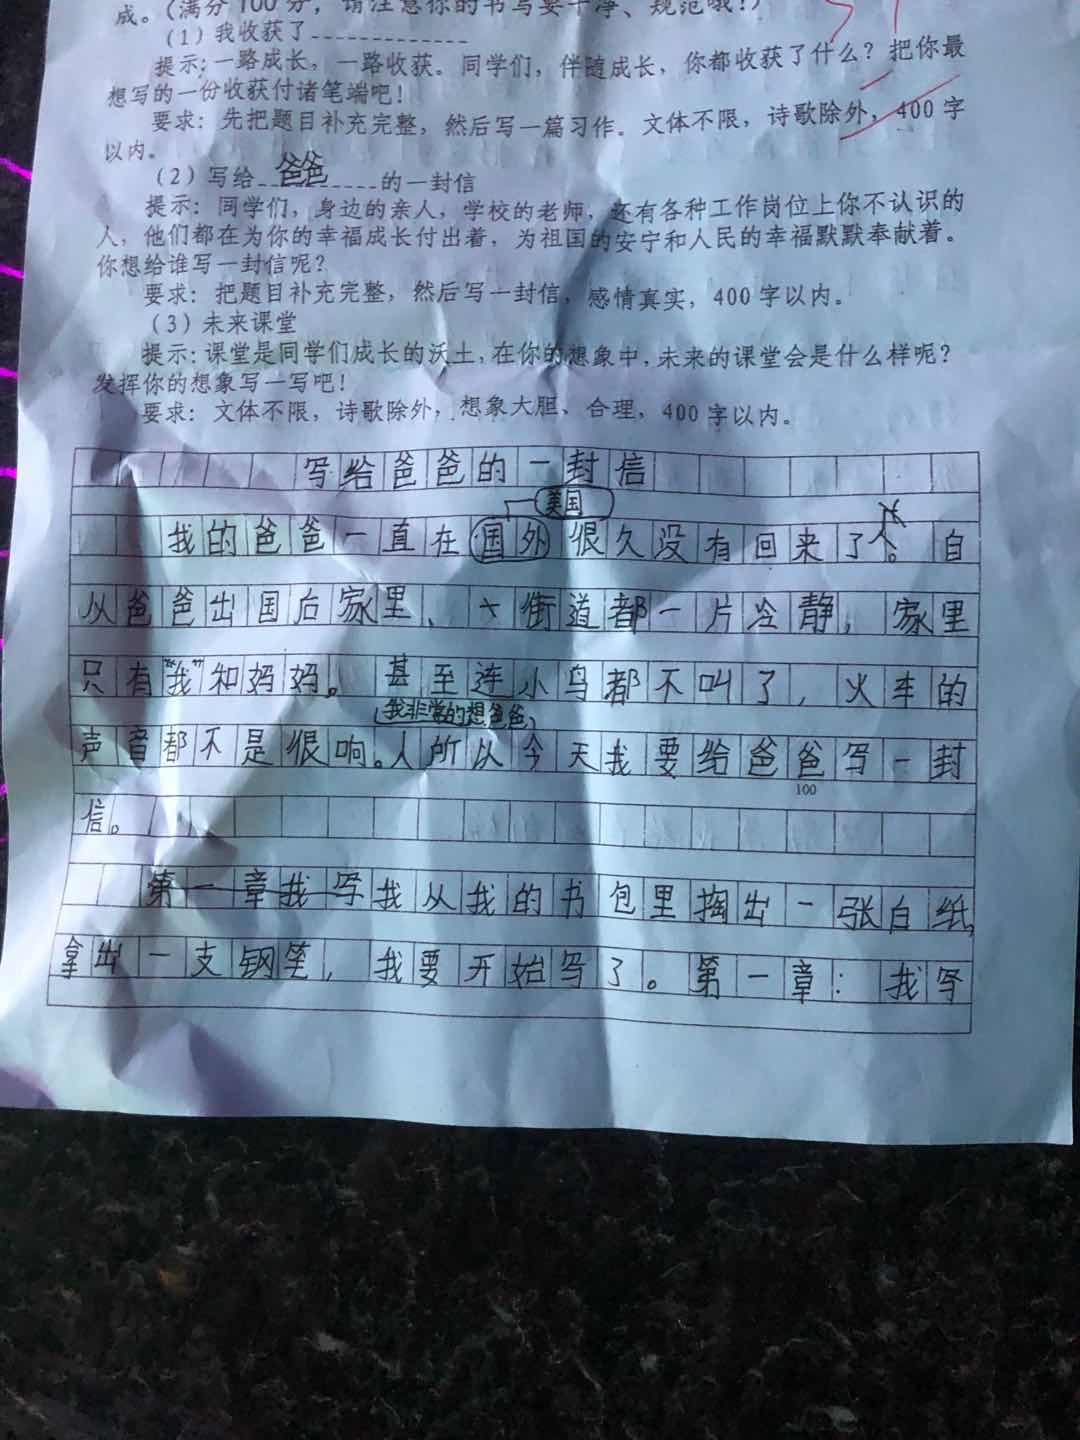 成。(满分100分，请注意你的书写要干净、规范哦!)
(1)我收获了
提示:一路成长，一路收获。同学们，伴随成长，你都收获了什么？把你最
想写的一份收获付诸笔端吧!
要求：先把题目补充完整，然后写一篇习作。文体不限，诗歌除外，400字
以内。
(2)写给 爸爸 的一封信
提示：同学们，身边的亲人，学校的老师，还有各种工作岗位上你不认识的
人，他们都在为你的幸福成长付出着，为祖国的安宁和人民的幸福默默奉献着。
你想给谁写一封信呢?
要求：把题目补充完整，然后写一封信，感情真实，400字以内。
(3)未来课堂
提示:课堂是同学们成长的沃土,在你的想象中,未来的课堂会是什么样呢?
发挥你的想象写一写吧!
要求：文体不限，诗歌除外，想象大胆、合理，400字以内。
写给爸爸的一封信
美国
我的爸爸一直在国外很久没有回来了。自
从爸爸出国后家里、大街道都一片冷静，家里
只有“我”和妈妈。甚至连小鸟都不叫了，火车的
我非常的想爸爸
声音都不是很响。所以今天我要给爸爸写一封
100
信。
第一章我写我从我的书包里掏出一张白纸,
拿出一支钢笔，我要开始写了。第一章：我写